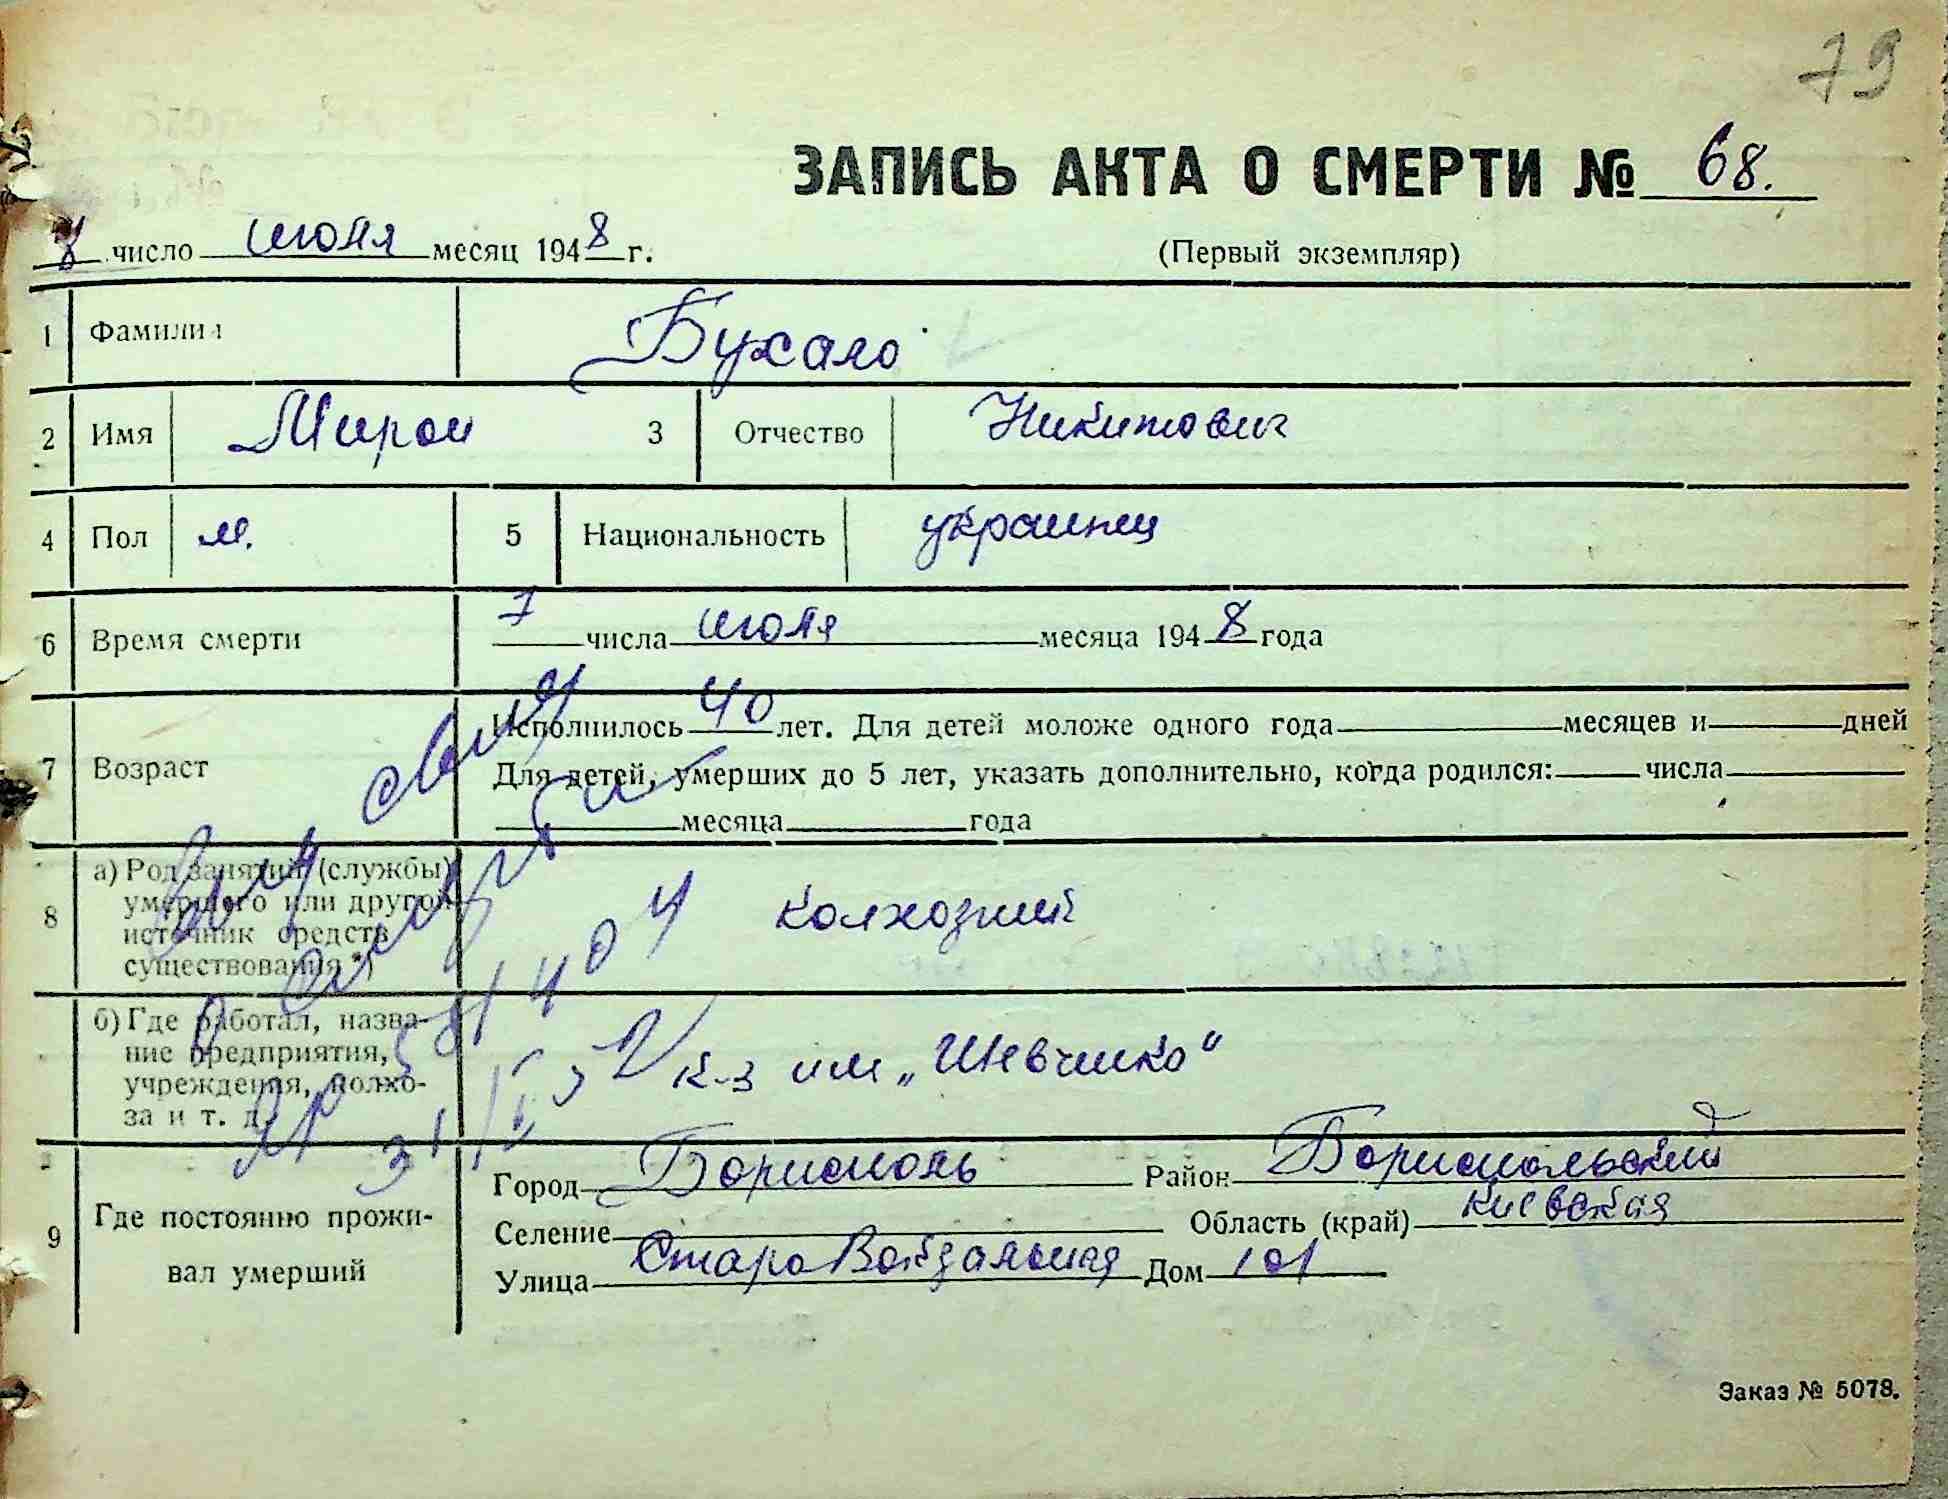 79
ЗАПИСЬ АКТА О СМЕРТИ № 68.
8 число июля месяц 1948 г.
(Первый экземпляр)
1 Фамилия Бухало
2 Имя Мирон 3 Отчество Никитович
4 Пол м. 5 Национальность украинец
6 Время смерти 7 числа июля месяца 1948 года
7 Возраст Исполнилось 40 лет. Для детей моложе одного года месяцев и дней
Для детей, умерших до 5 лет, указать дополнительно, когда родился: числа
месяца года
8 а) Род занятий (службы)
умершего или другой
источник средств
существования *)
колхозник
б) Где работал, назва-
ние предприятия,
учреждения, колхо-
за и т. д.
к-з им „Шевченко"
9 Где постоянно прожи-
вал умерший
Город Борисполь Район Бориспольский
Селение Область (край) Киевская
Улица Старо Вокзальная Дом 101
Заказ № 5078.